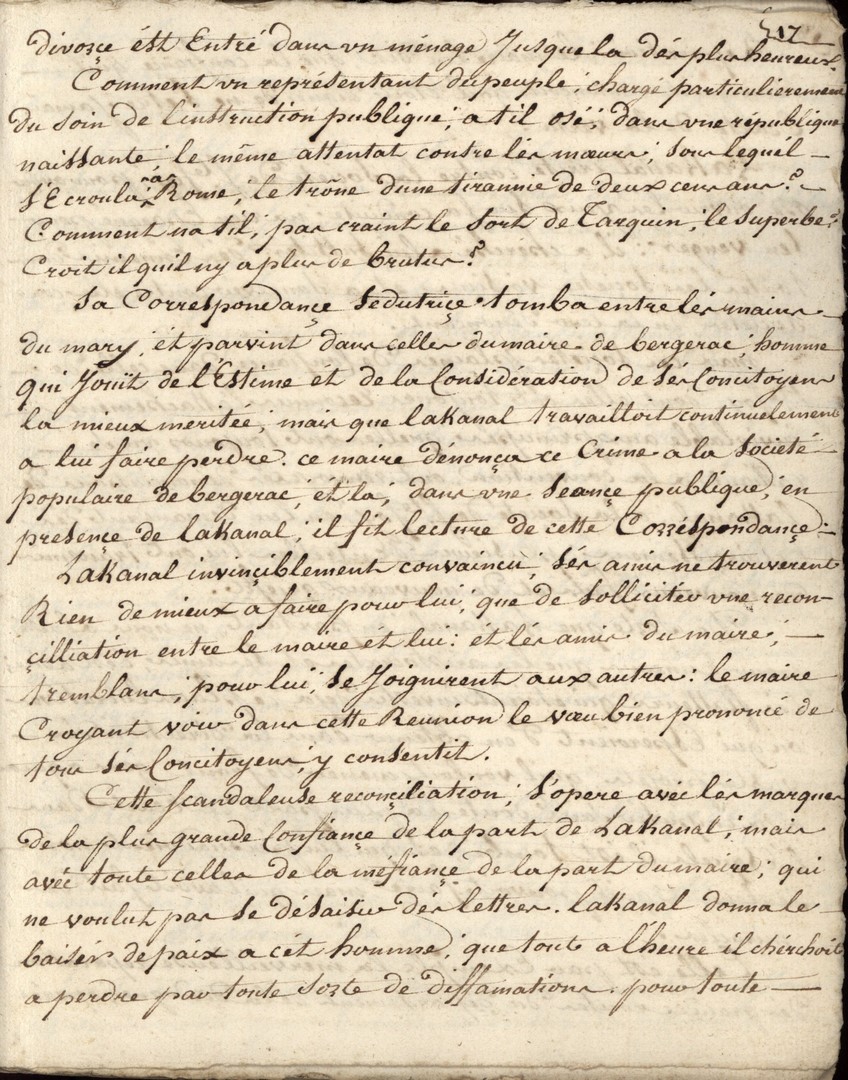 17
divorçe ést Entré dans un ménage Jusque la dés plus heureux.
Comment un représentant du peuple; chargé particulierement
du soin de l'instruction publique; a til osé; dans une république
naissante; le même attentat contre lés mœurs; sous lequél —
s'Ecroula; a Rome; le trône dune tirannie de deux cens ans? —
Comment na til; pas craint le sort de Tarquin; le superbe?
Croit il quil ny a plus de brutus?
Sa Correspondançe Sedutriçe tomba entre lés mains —
du mary; ét parvint dans celles du maire de bergerac; homme
qui Jouït de l'Estime ét de la Considération de sés Concitoyens
la mieux meritée; mais que lakanal travailloit continuelement
a lui faire perdre. ce maire dénonça ce Crime a la Societé
populaire de bergerac; ét la; dans une Seançe publique; en
presençe de lakanal; il fit lecture de cette Corréspondançe: —
Lakanal invinçiblement convaincu; sés amis ne trouverent
Rien de mieux a faire pour lui; que de solliciter une recon-
çilliation entre le maire ét lui: ét lés amis du maire; —
tremblans; pour lui; se Joignirent aux autres: le maire
Croyant voir dans cette Reunion le vœu bien prononcé de
tous sés Concitoyens; y consentit.
Cette scandaleuse reconçiliation; s'opere avéc lés marques
de la plus grande Confiançe de la part de Lakanal; mais
avéc toute celles de la méfiançe de la part du maire; qui
ne voulut pas se désaisir dés lettres. lakanal donna le —
baisér de paix a cét homme; que toute a l'heure il chérchoit
a perdre par toute sorte de diffamations. pour toute —